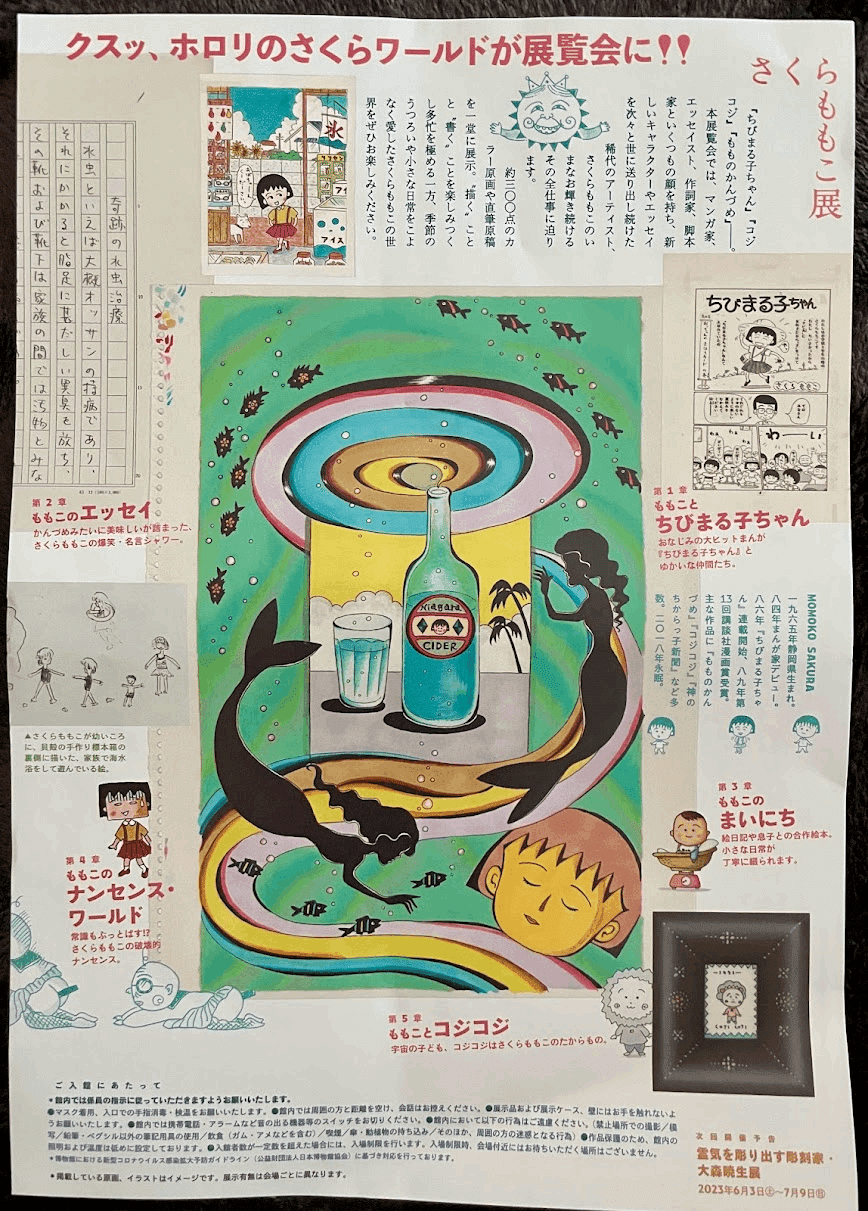 クスッ、ホロリのさくらワールドが展覧会に!!
さくら
ももこ展
『ちびまる子ちゃん』『コジ
コジ』『もものかんづめ』――。
本展覧会では、マンガ家、
エッセイスト、作詞家、脚本
家といくつもの顔を持ち、新
しいキャラクターやエッセイ
を次々と世に送り出し続けた
稀代のアーティスト、
さくらももこのい
まなお輝き続ける
その全仕事に迫り
ます。
約三〇〇点のカ
ラー原画や直筆原稿
を一堂に展示。“描く”こと
と“書く”ことを楽しみつく
し多忙を極める一方、季節の
うつろいや小さな日常をこよ
なく愛したさくらももこの世
界をぜひお楽しみください。
氷
アイス
奇跡の水虫治療
水虫といえば大概オッサンの持病であり、
それにかかると脂足に甚だしい異臭を放ち、
その靴および靴下は家族の間では汚物とみな
ちびまる子ちゃん
さくらももこ
わーい
第1章
ももこと
ちびまる子ちゃん
おなじみの大ヒットまんが
『ちびまる子ちゃん』と
ゆかいな仲間たち。
第2章
ももこのエッセイ
かんづめみたいに美味しいが詰まった、
さくらももこの爆笑・名言シャワー。
Niagara
CIDER
MOMOKO SAKURA
一九六五年静岡県生まれ。
八四年まんが家デビュー。
八六年『ちびまる子ちゃ
ん』連載開始、八九年第
13回講談社漫画賞受賞。
主な作品に『もものかん
づめ』『コジコジ』『神の
ちからっ子新聞』など多
数。二〇一八年永眠。
▲さくらももこが幼いころ
に、貝殻の手作り標本箱の
裏側に描いた、家族で海水
浴をして遊んでいる絵。
第3章
ももこの
まいにち
絵日記や息子との合作絵本。
小さな日常が
丁寧に綴られます。
第4章
ももこの
ナンセンス・
ワールド
常識もぶっとばす!?
さくらももこの破壊的
ナンセンス。
第5章
ももことコジコジ
宇宙の子ども、コジコジはさくらももこのたからもの。
COJI COJI
ご入館にあたって
*館内では係員の指示に従っていただきますようお願いいたします。
●マスク着用、入口での手指消毒・検温をお願いいたします。●館内では周囲の方と距離を空け、会話はお控えください。●展示品および展示ケース、壁にはお手を触れないよ
うお願いいたします。●館内では携帯電話・アラームなど音の出る機器等のスイッチをお切りください。●館内において以下の行為はご遠慮ください。(禁止場所での撮影/模
写/鉛筆・ペグシル以外の筆記用具の使用/飲食(ガム・アメなどを含む)/喫煙/傘・動植物の持ち込み/そのほか、周囲の方の迷惑となる行為)●作品保護のため、館内の
照明および温度は低めに設定しております。●入館者数が一定数を超えた場合には、入場制限を行います。入場制限時、会場付近にはお待ちいただく場所はございません。
*博物館における新型コロナウイルス感染拡大予防ガイドライン(公益財団法人日本博物館協会)に基づき対応を行っております。
*掲載している原画、イラストはイメージです。展示有無は会場ごとに異なります。
次回開催予告
霊気を彫り出す彫刻家・
大森暁生展
2023年6月3日㊏~7月9日㊐